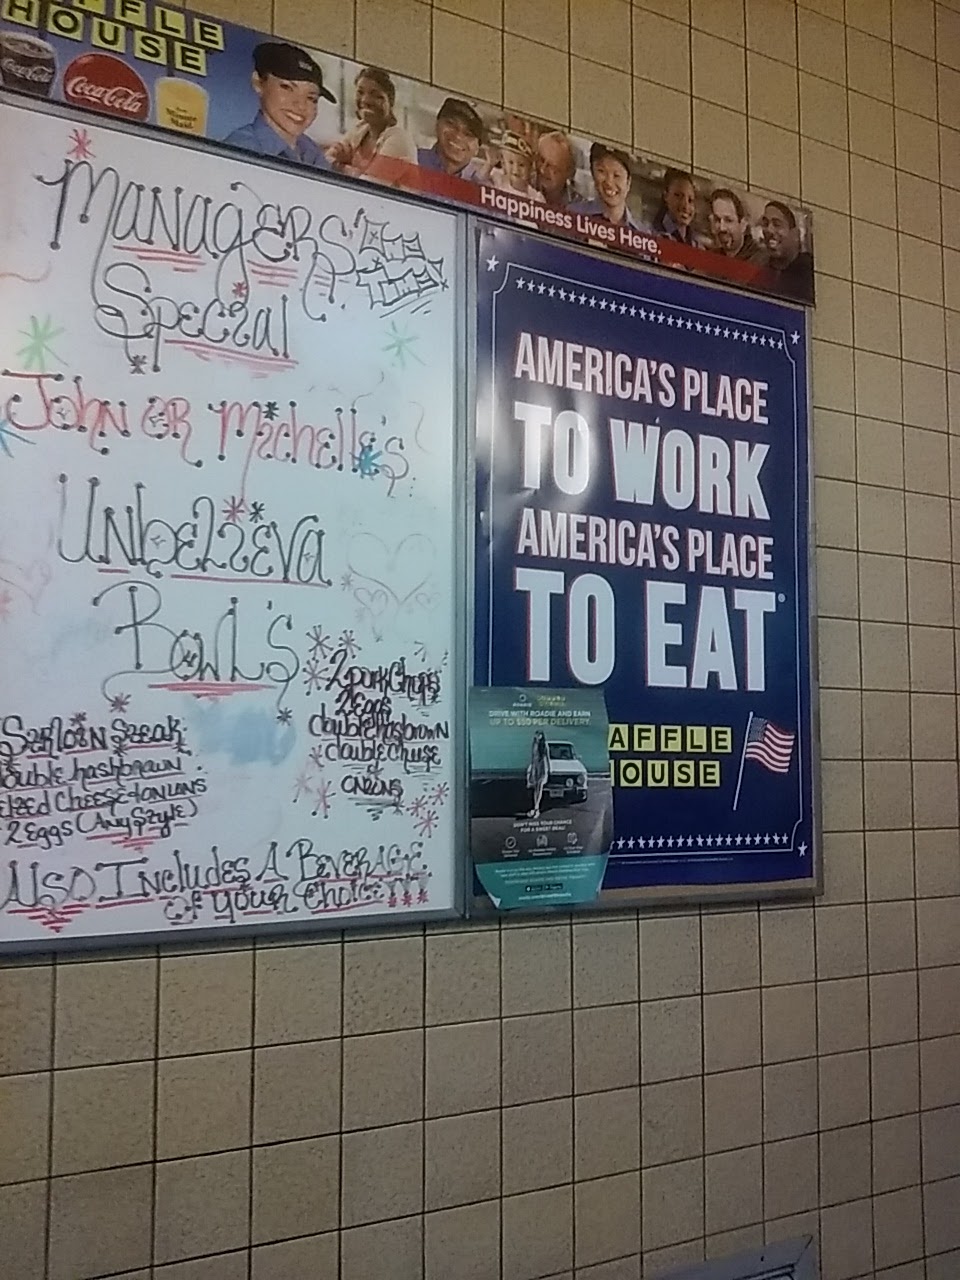 AFFLE
HOUSE
Coca-Cola
Coca-Cola
Minute Maid
Happiness Lives Here.
Managers'
Special
John or Michelle's
Unbelieva
Bowl's
Sirloin Steak
ouble hashbrown
Cheese + onions
2 Eggs (Any Style)
2 pork chops
2 Eggs
double hasbrown
double cheese
onions
Also Includes A Beverage
of your choice!!!
AMERICA'S PLACE
TO WORK
AMERICA'S PLACE
TO EAT®
AFFLE
OUSE
DRIVE WITH ROADIE AND EARN
UP TO $50 PER DELIVERY.
DON'T MISS YOUR CHANCE
FOR A SWEET DEAL!